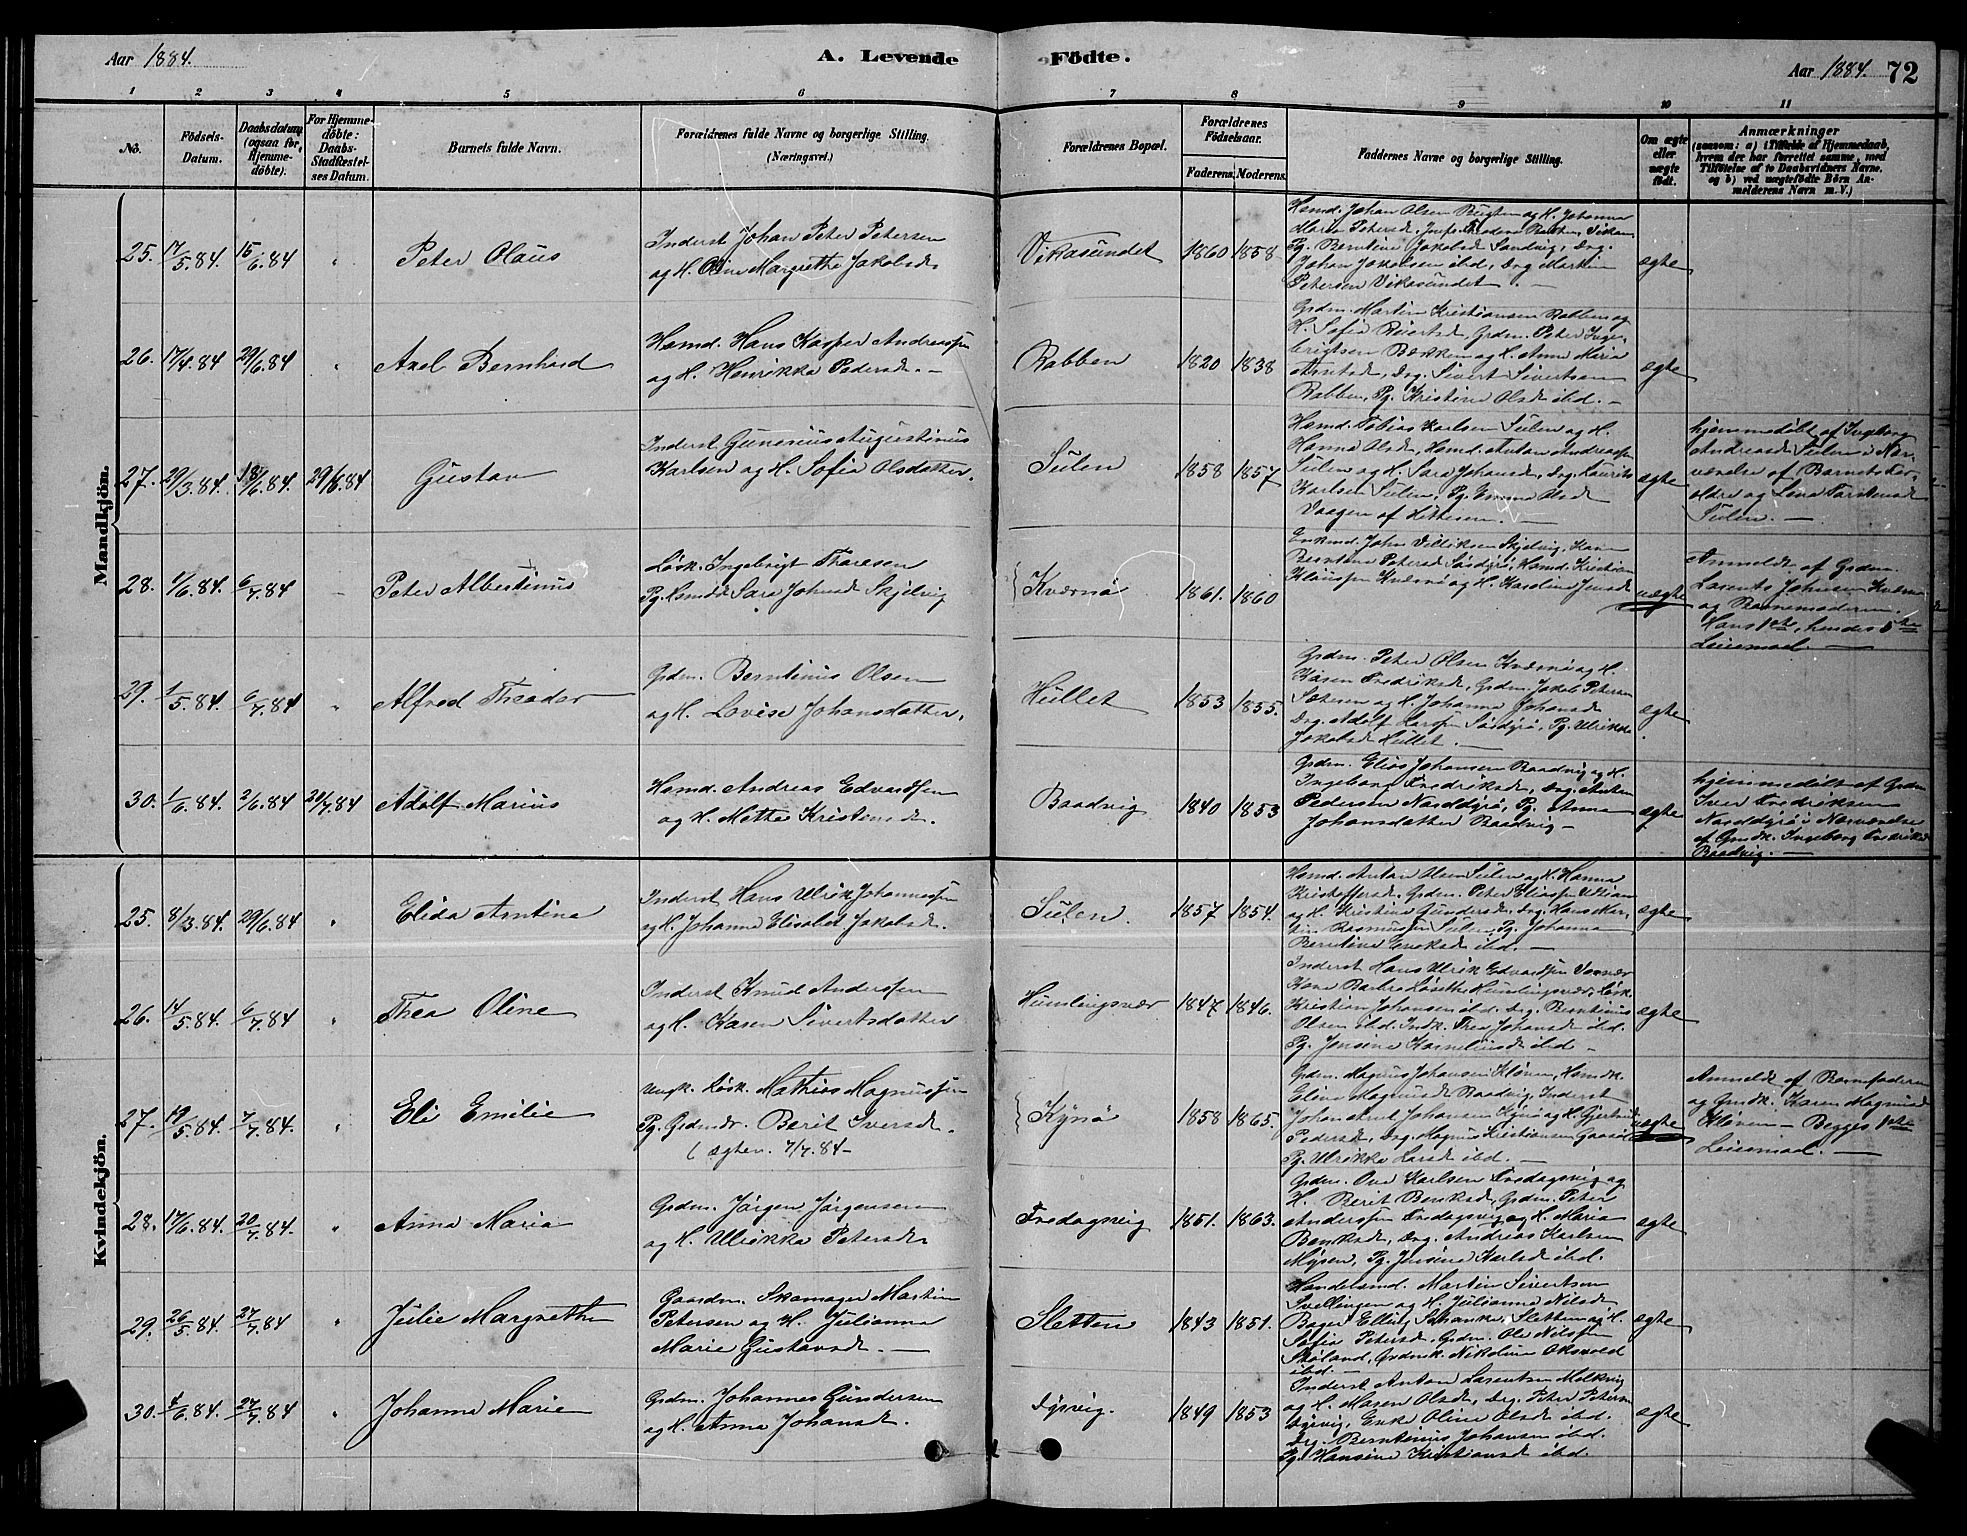 Aar 1884.
A. Levende Födte.
Aar 1884. 72
1 2 3 4 5 6 7 8 9 10 11
No.
Födsels-Datum.
Daabsdatum (ogsaa for Hjemme-döbte).
For Hjemme-döbte: Daabs-Stadfæstel-ses Datum.
Barnets fulde Navn.
Forældrenes fulde Navne og borgerlige Stilling.
(Næringsvei.)
Forældrenes Bopæl.
Forældrenes Födselsaar.
Faderens. Moderens.
Faddernes Navne og borgerlige Stilling.
Om ægte eller uægte födt.
Anmærkninger
(saasom: a) i Tilfælde af Hjemmedaab,
hvem der har forrettet samme, med
Tilföielse af to Daabsvidners Navne,
og b) ved uægtefödte Börn An-
melderens Navn m. V.)
Mandkjön.
25. 17/5.84. 15/6.84 " Peter Olaus
Inderst Johan Peter Petersen
og H. Oline Margrethe Jakobsd.
Vikasundet 1860 1858
Johan Jakobsen ibd, Drg. Martin
Petersen Vikasundet. —
ægte
26. 17/4.84 29/6.84 " Axel Bernhard
Hsmd. Hans Kasper Andreassen
og H. Henrikka Pedersd. —
Rabben 1820 1838
Grdm. Martin Kristiansen Rabben og
H. Sofia
Grdm. Peter Inge-
brigtsen Bækken og H. Anne Maria
Drg. Sivert Sivertsen
Rabben, Pg. Kristine Olsd. ibd. —
ægte
27. 29/3.84. 13/6.84. 29/6.84 Gustav
Inderst Gunerius Augustinus
Karlsen og H. Sofia Olsdatter.
Sulen 1858 1857
Hsmd. Tobias Karlsen Sulen og H.
Hanna Olsd, Hsmd. Anton Andreassen
Sulen og H. Sara Johansd, Drg. Laurits
Karlsen Sulen, Pg. Emma Olsd
Vaagen af Hitteren. —
ægte
hjemmedöbt af Ingeborg
Andreasd Sulen i Nær-
værelse af Barnets For-
ældre og Lena Torstensd
Sulen. —
28. 1/6.84 6/7.84 — Peter Albertinus
Lösk. Ingebrigt Thoresen
Pg. Sara Johnsd Skjelvig
Kværnö 1861. 1860
Johan
Skjelvig, Kone
Berntine Petersd
Hsmd. Kristian
Klaussen Kværnö og H. Karoline Jensd
uægte
Anmeldt af Grdm.
Lorents Johnsen Kværnö
og Barnemoderen.
Hans 1ste, hendes 5te
Leiermaal. —
29. 1/5.84. 6/7.84 " Alfred Theodor
Grdm. Berntinus Olsen
og H. Lovise Johansdatter.
Hullet 1853 1855.
Grdm. Peter Olsen Kværnö og H.
Karen Fredriksd, Grdm. Jakob Petersen
Sæteren og H. Johanna Johansd
Drg. Adolf
Pg. Ulrikke
Jakobsd Hullet. —
ægte
30. 1/6.84. 2/6.84 20/7.84 Adolf Marius
Hsmd. Andreas Edvardsen
og H. Mette Kristensd.
Baadvig 1840 1853
Grdm. Elias Johansen Baadvig og H.
Ingeborg Fredriksd, Drg. Anton
Pedersen Norddyrö, Pg. Anna
Johansdatter Baadvig —
ægte
hjemmedöbt af Grdm
Iver Fredriksen
Norddyrö i Nærværelse
af Gmdk. Ingeborg Fredriksd
Baadvig. —
Kvindekjön.
25. 8/3.84. 29/6.84 " Elida Arntina
Inderst Hans Ulrik Johannessen
og H. Johanna Elisabet Jakobsd.
Sulen. 1857 1854.
Hsmd. Anton Olsen Sulen og H. Hanna
Kristoffersd. Grdm. Peter Eliassen
og H. Kristine Gundersd, Drg. Hans Mar-
tin Rasmussen Sulen, Pg. Johanna
Berntine
ibd. —
ægte
26. 14/5.84. 6/7.84 " Thea Oline
Inderst Knud Andersen
og H. Karen Sivertsdatter
Humlingsvær 1847 1846.
Inderst Hans Ulrik Edvardsen
Kone
Humlingsvær, Lösk.
Kristian Johansen ibd. Drg. Berntinus
Olsen ibd. Indk. Thea Johansd ibd.
Pg. Jensine Korneliusd ibd —
ægte
27. 19/5.84. 7/7.84. " Eli Emilie
Ungk. Lösk. Mathias Magnussen
Pg. Grdmdr. Berit Iversd.
( ægtev. 7/7.84 —
Kyrö 1858 1865.
Grdm. Magnus Johansen Kløven, Hsmdk.
Eline Magnusd Baadvig, Inderst
Johan
Johansen Kyrö og H. Gjertrud
Pedersd, Drg. Magnus Kristiansen
Pg. Ulrikka Larsd ibd. —
uægte
Anmeldt af Barnefaderen
og Gmdk. Karen Magnusd
Kløven — Begges 1ste
Leiermaal. —
28. 17/6.84. 20/7.84. " Anna Maria
Grdm. Jörgen Jörgensen
og H. Ulrikka Petersd.
Fredagsvig 1851. 1863.
Grdm. Ove Karlsen Fredagsvig og
H. Berit Benksd, Grdm. Peter
Anderssen Fredagsvig og H. Maria
Benksd, Drg. Andreas Karlsen
Mysen, Pg. Jensine Karlsd ibd.
ægte
29. 26/5.84. 27/7.84 " Julie Margrethe
Gaardm. Skomager Martin
Petersen og H. Julianna
Marie Gustavsd. —
Sletten 1843 1851.
Handelsmd. Martin Sivertsen
Svellingen og H. Julianna Nilsd
Bager Elling
Sletten og H.
Sofia Petersd, Grdm. Ole Nilssen
Gmdk. Nikoline
ibd —
ægte
30. 7/6.84. 27/7.84 " Johanna Marie
Grdm. Johannes Gundersen
og H. Anne Johansd.
Dyrvig. 1849 1853
Inderst Anton Larentsen
og H. Maren Olsd, Drg. Peter Petersen
Dyrvig, Enke Oline Olsd ibd.
Drg. Berntinus Johansen ibd.
Pg. Hansine Kristiansd ibd.
ægte